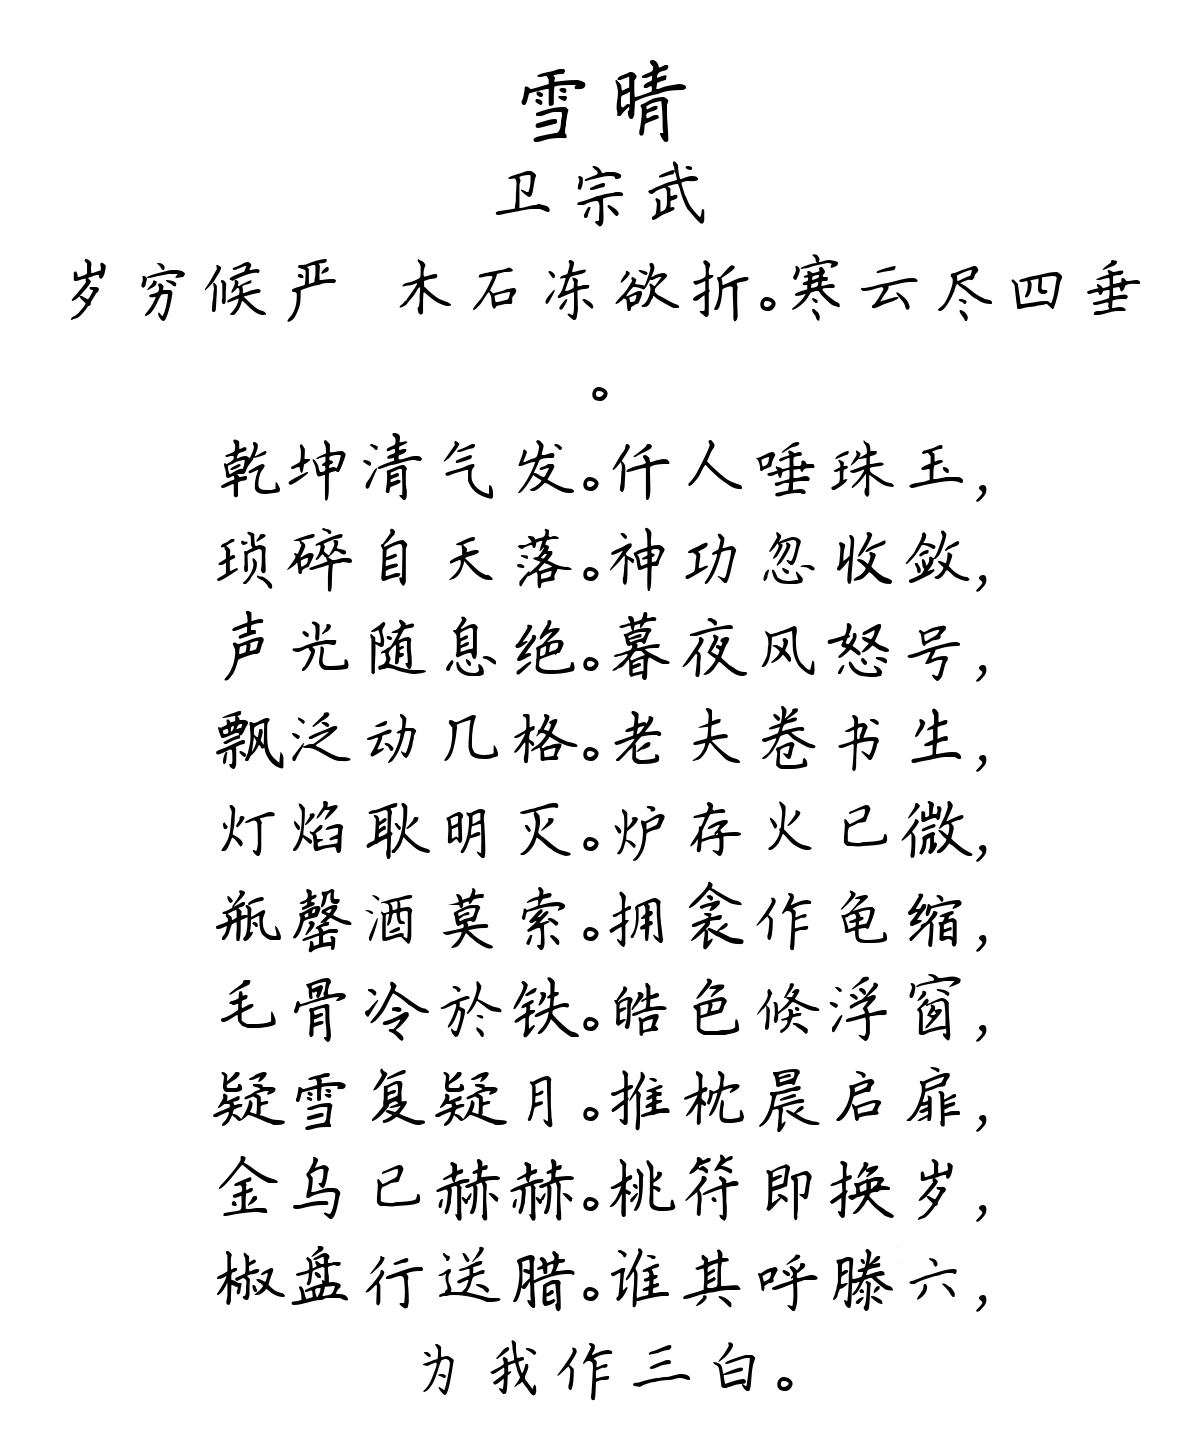 雪晴
卫宗武
岁穷候严 木石冻欲折。寒云尽四垂
。
乾坤清气发。仟人唾珠玉,
琐碎自天落。神功忽收敛,
声光随息绝。暮夜风怒号,
飘泛动几格。老夫卷书生,
灯焰耿明灭。炉存火已微,
瓶罄酒莫索。拥衾作龟缩,
毛骨冷於铁。皓色倏浮窗,
疑雪复疑月。推枕晨启扉,
金乌已赫赫。桃符即换岁,
椒盘行送腊。谁其呼滕六,
为我作三白。